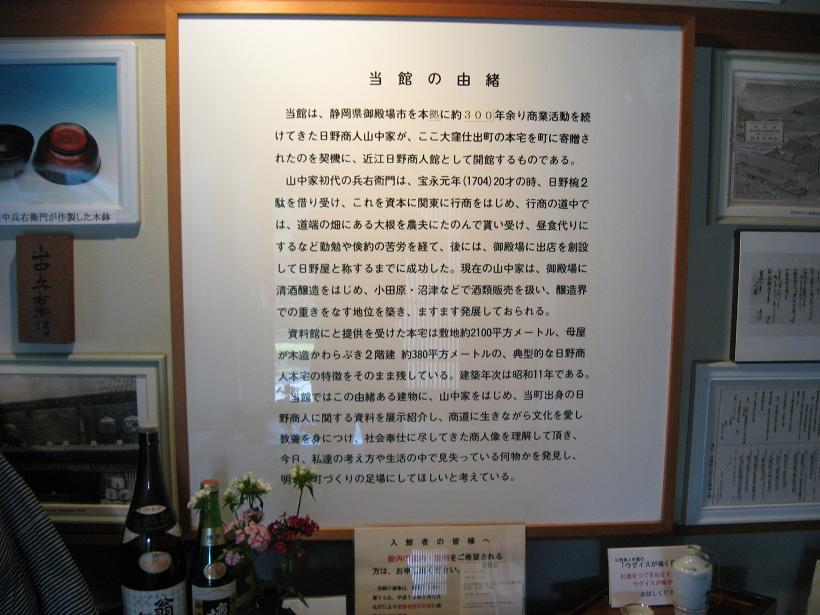 当館の由緒
当館は、静岡県御殿場市を本拠に約３００年余り商業活動を続
けてきた日野商人山中家が、ここ大窪仕出町の本宅を町に寄贈さ
れたのを契機に、近江日野商人館として開館するものである。
山中家初代の兵右衛門は、宝永元年(1704)20才の時、日野椀２
駄を借り受け、これを資本に関東に行商をはじめ、行商の道中で
は、道端の畑にある大根を農夫にたのんで貰い受け、昼食代りに
するなど勤勉や倹約の苦労を経て、後には、御殿場に出店を創設
して日野屋と称するまでに成功した。現在の山中家は、御殿場に
清酒醸造をはじめ、小田原・沼津などで酒類販売を扱い、醸造界
での重きをなす地位を築き、ますます発展しておられる。
資料館にと提供を受けた本宅は敷地約2100平方メートル、母屋
が木造かわらぶき２階建 約380平方メートルの、典型的な日野商
人本宅の特徴をそのまま残している。建築年次は昭和11年である。
当館ではこの由緒ある建物に、山中家をはじめ、当町出身の日
野商人に関する資料を展示紹介し、商道に生きながら文化を愛し
教養を身につけ、社会奉仕に尽してきた商人像を理解して頂き、
今日、私達の考え方や生活の中で見失っている何物かを発見し、
町づくりの足場にしてほしいと考えている。
中兵右衛門が作製した木鉢
山中兵右衛門
入館者の皆様へ
館内の をご希望される
方は、お申し ください。
「ウグイスが鳴く
お酒をつぐまねをす
ウグイスが鳴き
お試しくださ